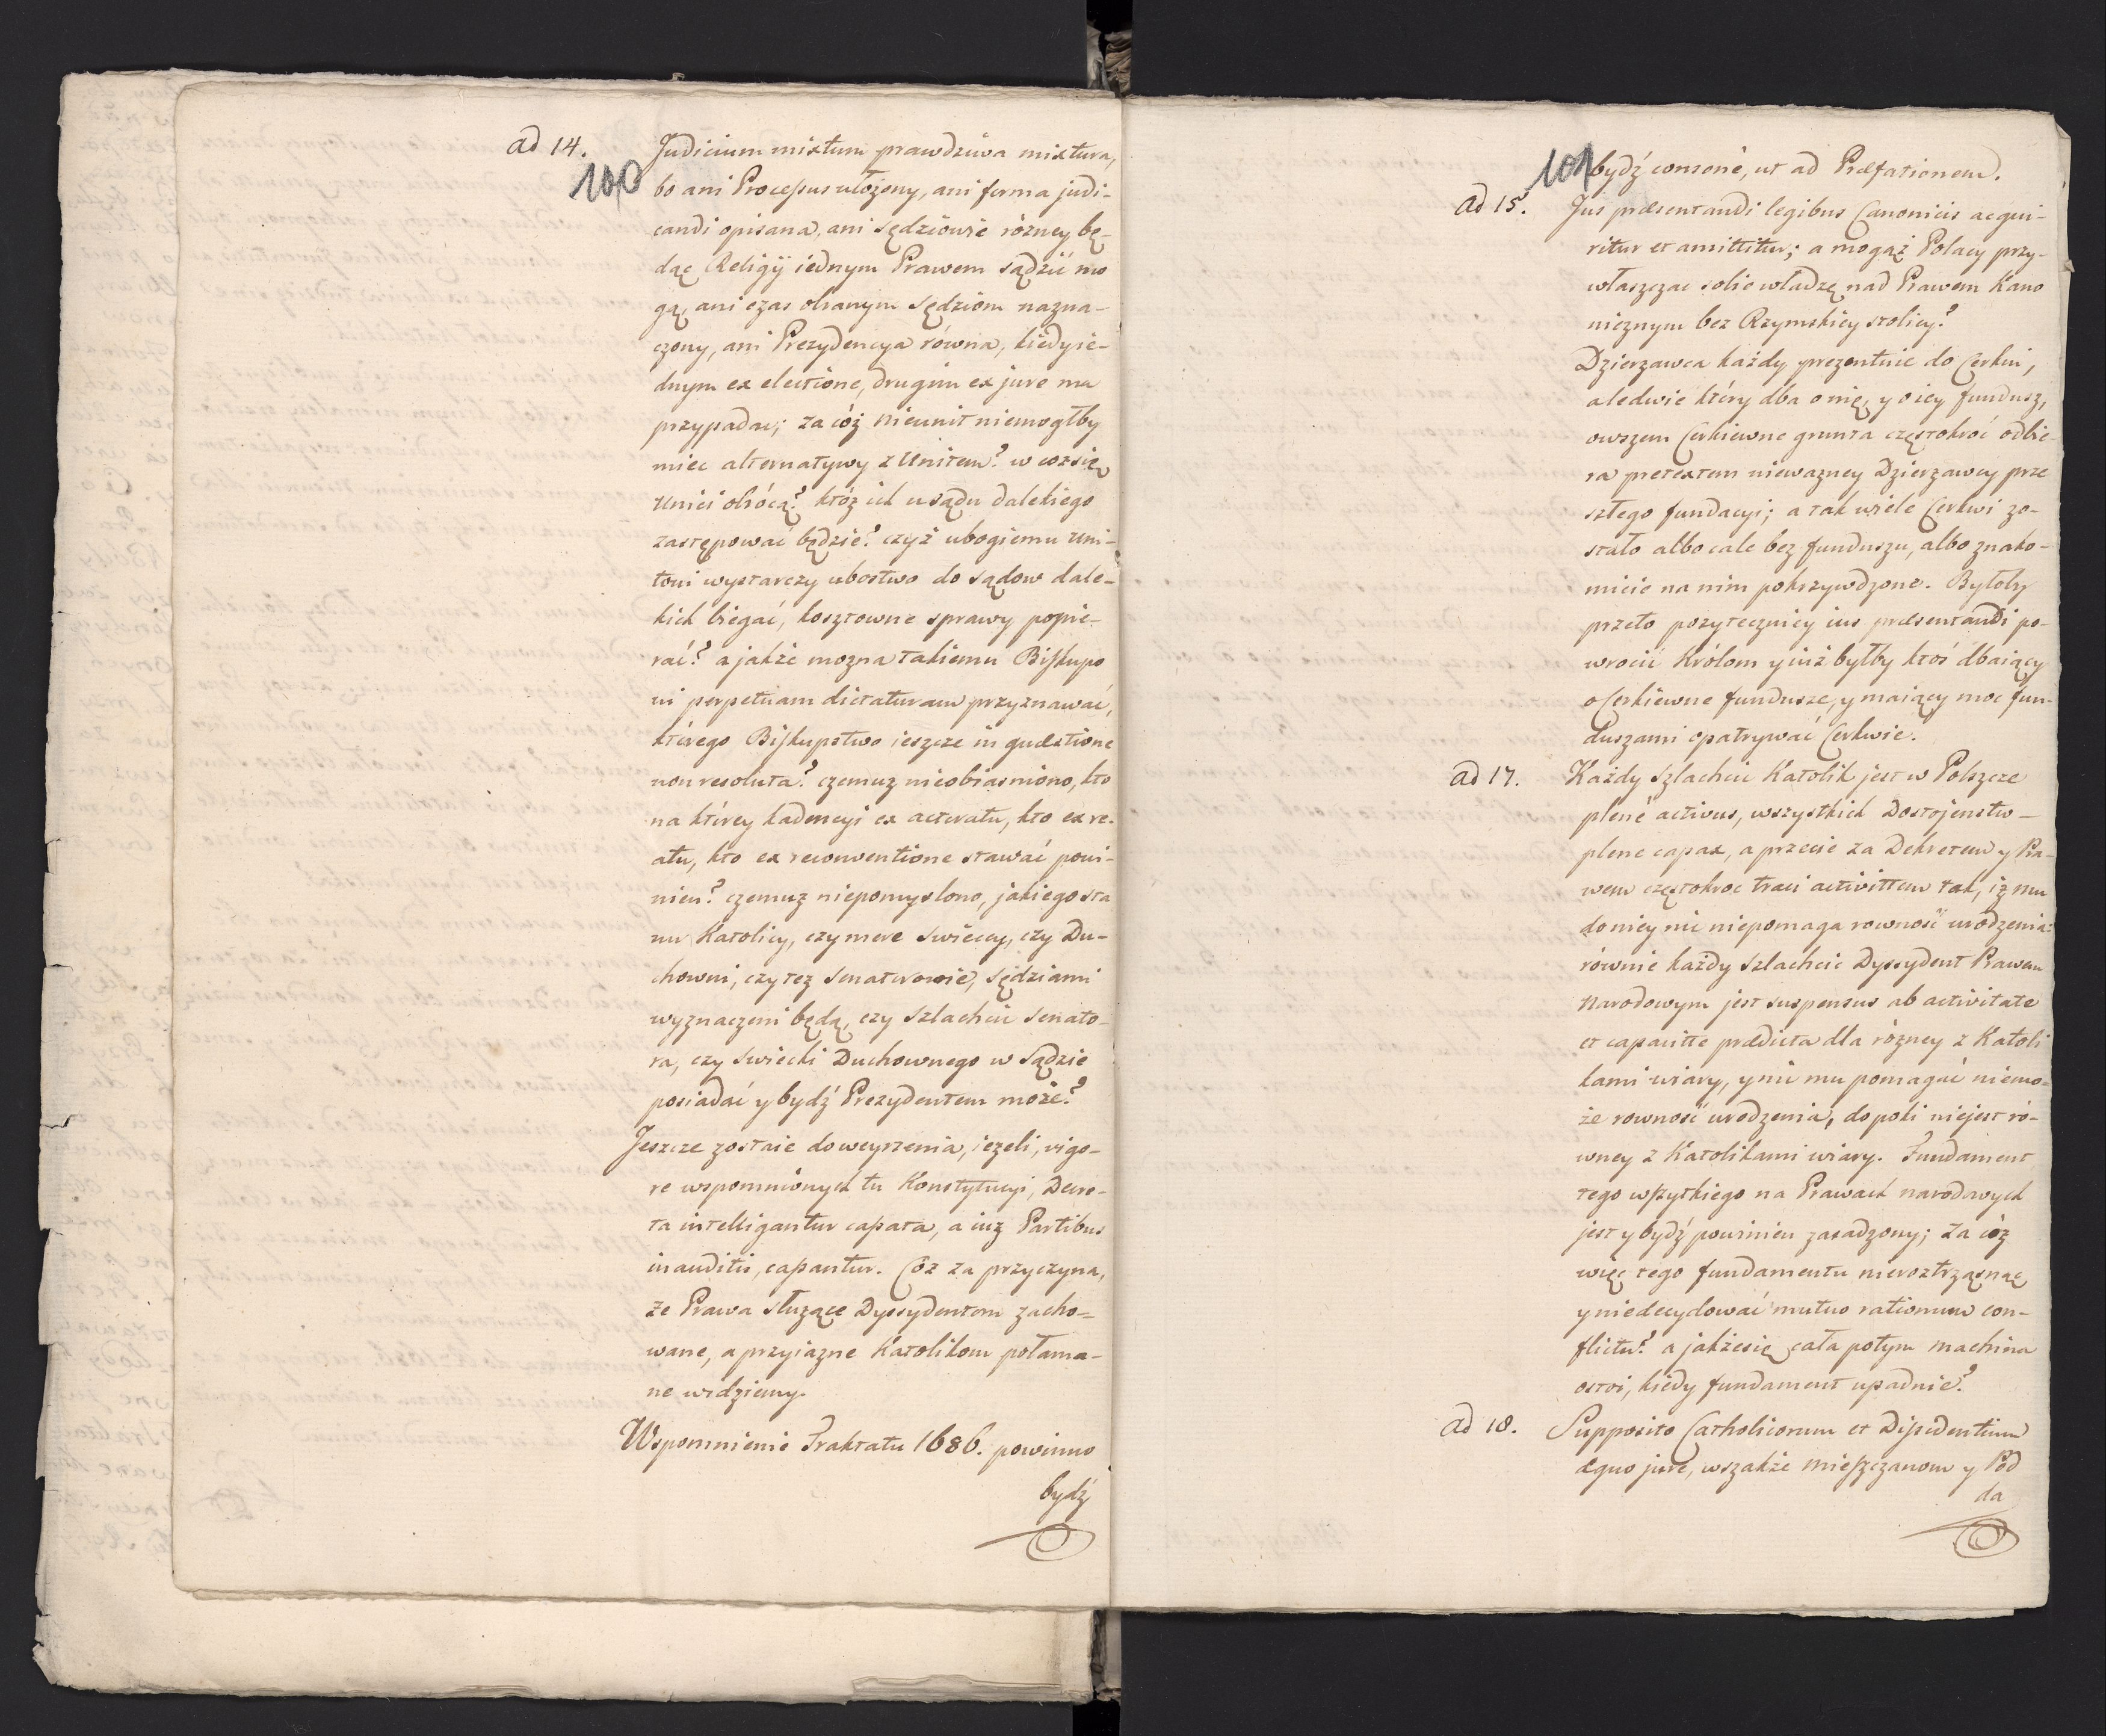 ad 14.
100
Judicium mixtum prawdziwa mixtura,
bo ani Processus ułożony, ani forma judi-
candi opisana, ani Sędziowie rózney bę-
dąc Religij iednym Prawem sądzić mo
gą, ani czas obranym Sędziom nazna-
czony, ani Prezydencya równa, kiedy ie-
dnym ex electione, drugim ex jure ma
przypadac; za cóż nieunit niemogłby
miec alternatywy z Unitem? w coż się
Unici obrócą? któż ich u sądu dalekiego
zastępować będzie? czyż ubogiemu Uni-
towi wystarczy ubostwo do sądow dale-
kich biegać, kosztowne sprawy popie-
rać? a jakże mozna takiemu Biskupo
wi perpetuam dictaturam przyznawać,
którego Biskupstwo ieszcze in quæstione
non resoluta? czemuz nieobiasniono, kto
na którey kadencyi ex actoratu, kto ex re-
atu, kto ex reconventione stawać powi-
nien? czemuz niepomyslono, jakiego sta
nu Katolicy, czy mere swieccy, czy Du-
chowni, czy tez Senatorowie, sędziami
wyznaczeni będą, czy Szlachcic Senato-
ra, czy Swiecki Duchownego w Sądzie
posiadać y bydź Prezydentem może?
Jeszcze zostaie do weyrzenia, ieżeli, vigo-
re wspomnionych tu Konstytucyi, Decre-
ta intelligantur cassata, a iuż Partibus
inauditis, cassantur. Coż za przyczyna,
że Prawa służące Dyssydentom zacho-
wane, a przyiazne Katolikom połama-
ne widziemy.
Wspomnienie Traktatu 1686. powinno
bydź
101
bydź consone, ut ad Præfationem.
ad 15.
Jus præsentandi legibus Canonicis acqui-
ritur et amittitur; a mogąż Polacy przy-
właszczac sobie władzę nad Prawem Kano
nicznym bez Rzymskiey stolicy?
Dzierzawca każdy prezentuie do Cerkwi,
a ledwie który dba o nię, y o iey fundusz,
owszem Cerkiewne grunta częstokroć odbie-
ra pretextem nieważney Dzierzawcy prze
szłego fundacyi; a tak wiele Cerkwi zo-
stało albo cale bez funduszu, albo znako-
micie na nim pokrzywdzone. Byłoby
przeto pozyteczniey ius præsentandi po-
wrocić Królom y iuż byłby ktoś dbaiący
o Cerkiewne fundusze, y maiący moc fun-
duszami opatrywać Cerkwie.
ad 17.
Każdy Szlachcic Katolik jest w Polszcze
plene activus, wszystkich Dostojenstw-
plene capax, a przecie za Dekretem y Pra-
wem częstokroc traci activittem tak, iż mu
do niey nic niepomaga rowność urodzenia:
równie każdy Szlachcic Dyssydent Prawem
Narodowym jest suspensus ab activitate
et capacitte prædicta dla rózney z Katoli
kami wiary, y nic mu pomagać niemo-
że rowność urodzenia, dopoki niejest ró-
wney z Katolikami wiary. Fundament
tego wszystkiego na Prawach narodowych
jest y bydź powinien zasadzony; za coż
więc tego fundamentu nieroztrząsnąć
y niedecydować mutuo rationum con-
flictu? a jakże się cała potym machina
ostoi, kiedy fundament upadnie?
ad 18.
Supposito Catholicorum et Dissidentium
æquo jure, wszakże mieszczanom y Pod
da